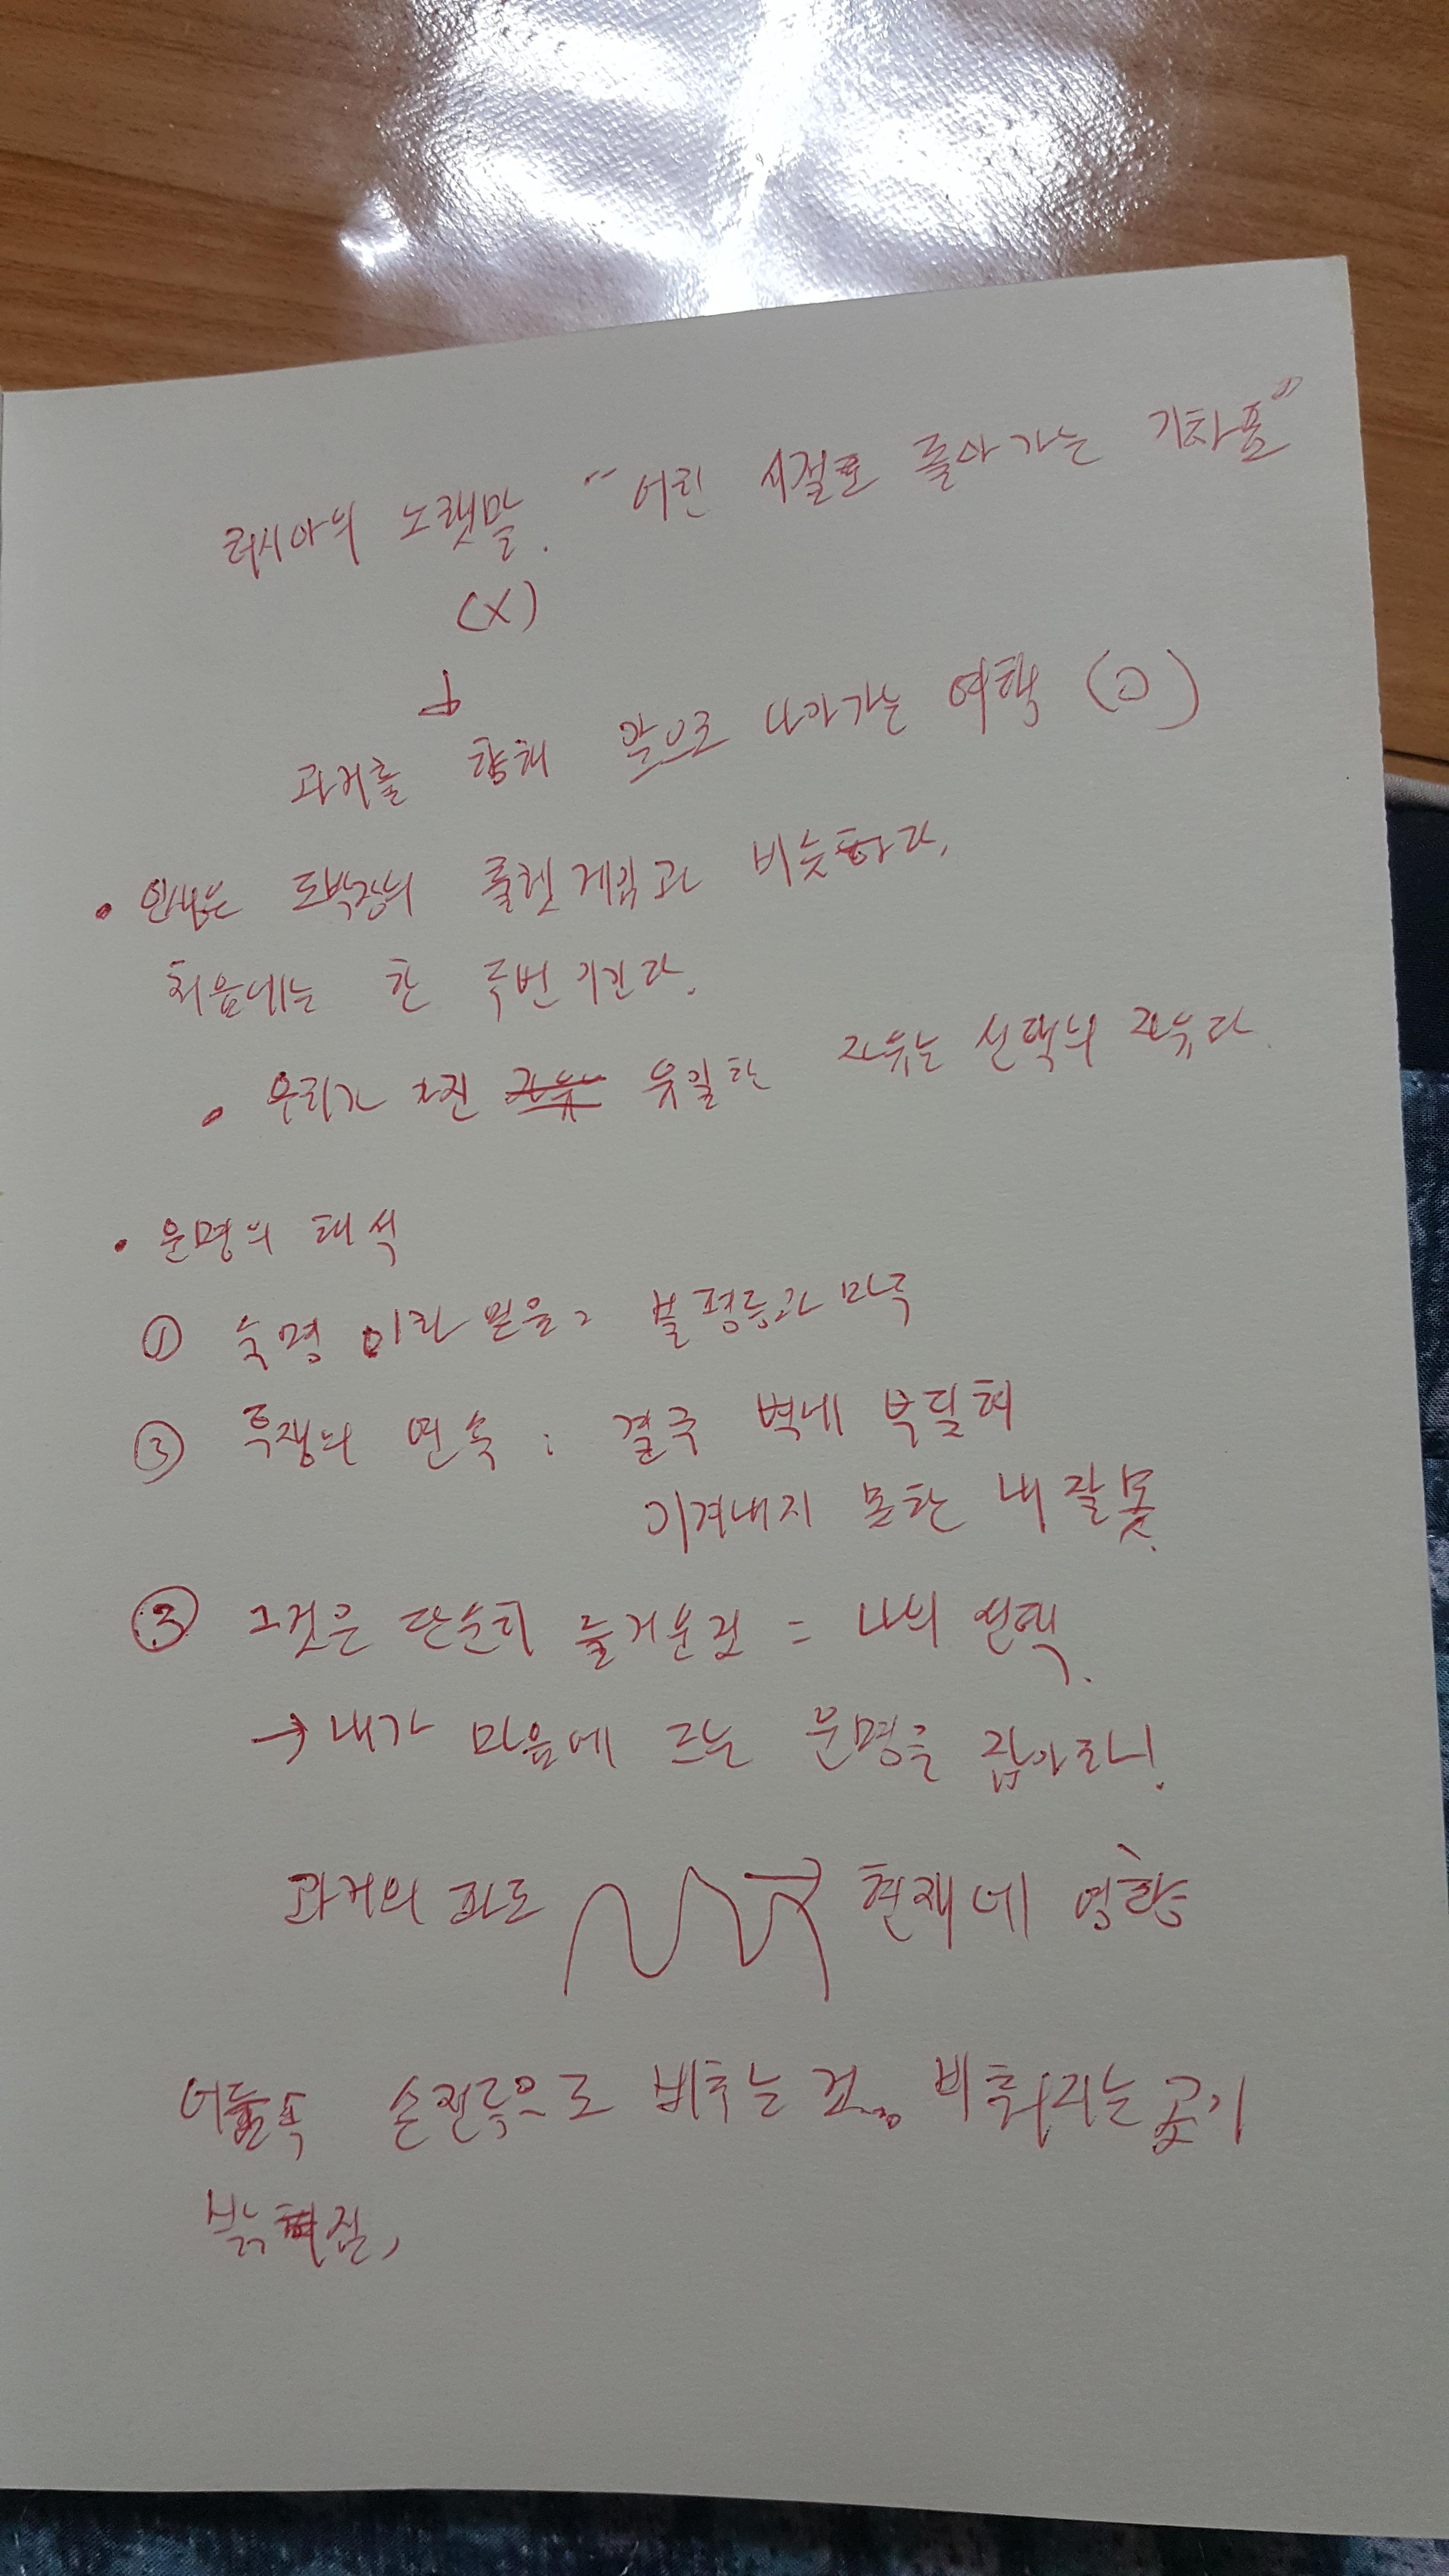 러시아의 노랫말. "어린 시절로 돌아가는 기차표"
(X)
과거를 향해 앞으로 나아가는 여행 (O)
• 인생은 도박장의 룰렛게임과 비슷하다.
처음에는 한 두번 이긴다.
• 우리가 가진 유일한 자유는 선택의 자유다.
• 운명의 해석
① 숙명이란 믿음: 불평등과 마주
② 투쟁의 연속 : 결국 벽에 부딪혀
이겨내지 못한 내 잘못.
③ 그것은 단순히 즐거운것 = 나의 선택.
→ 내가 마음에 드는 운명을 잡아라!
과거의 파도 현재에 영향
어둠속 손전등으로 비추는 것. 비춰지는 곳이
밝혀짐,